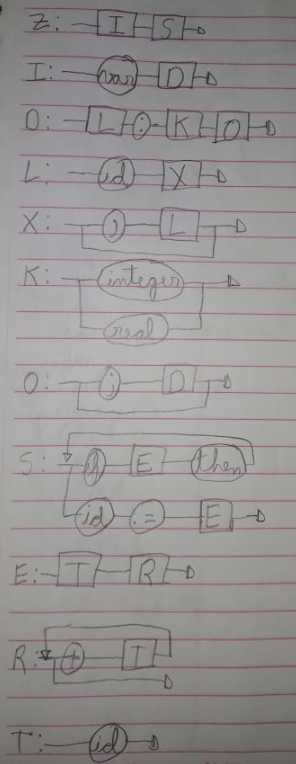 Z: I S
I: var D
D: L : K O
L: id X
X: , L
K: integer
real
O: ; D
S: if E then
id := E
E: T R
R: + T
T: id